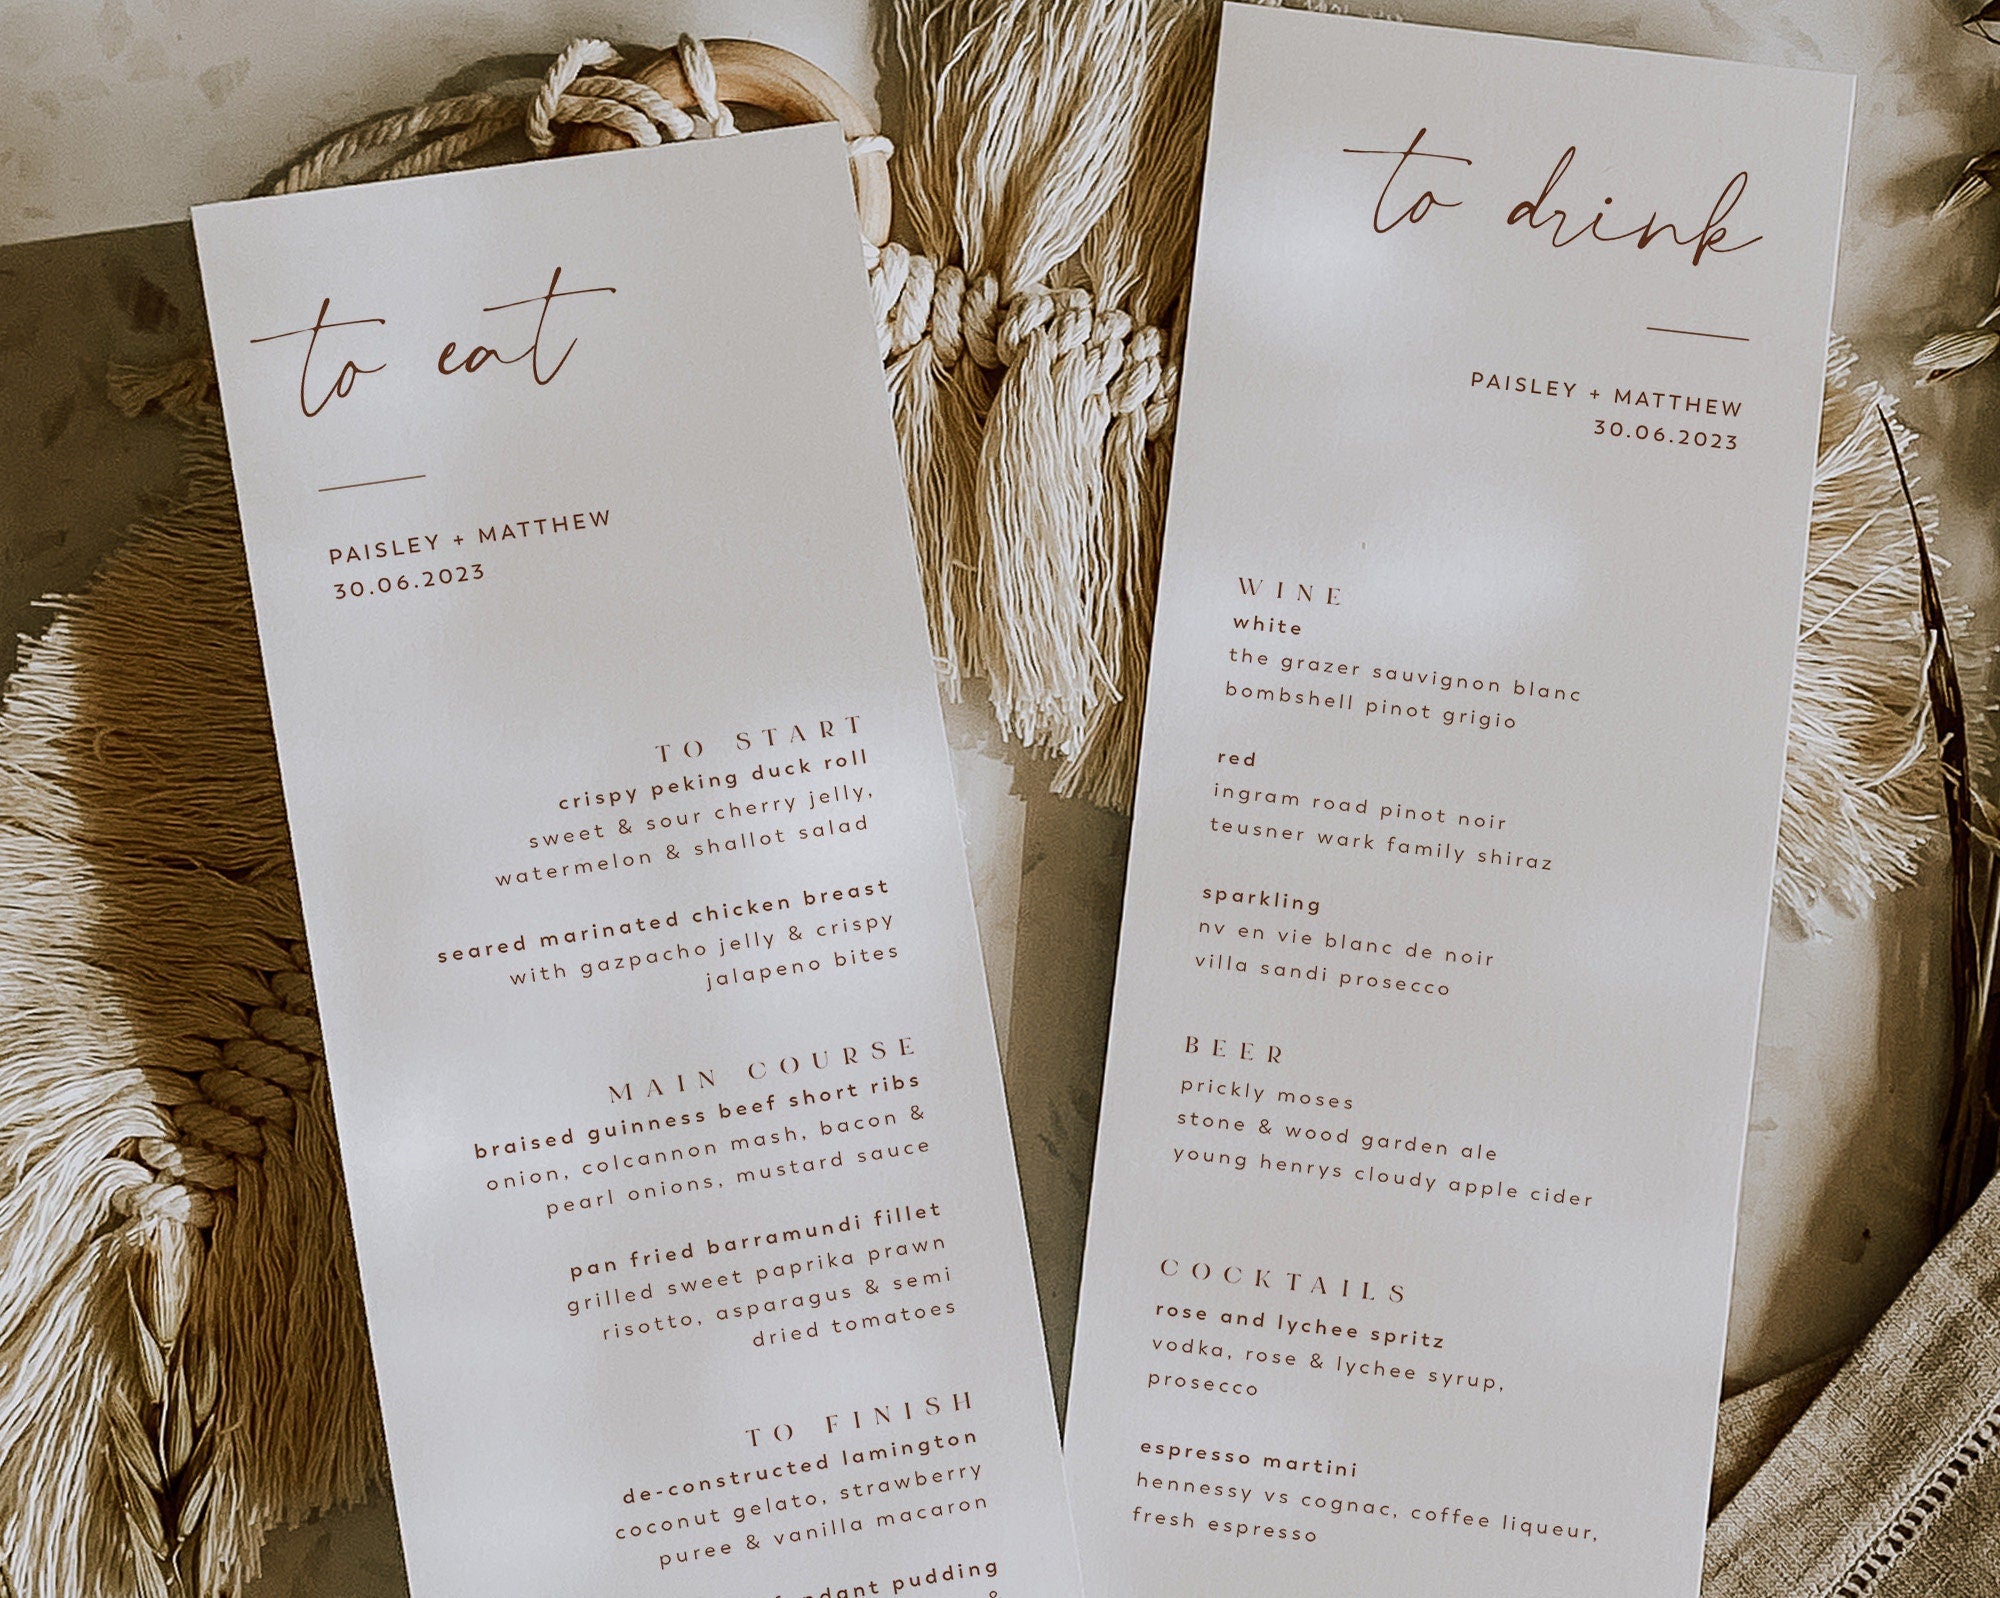 to eat
PAISLEY + MATTHEW
30.06.2023
TO START
crispy peking duck roll
sweet & sour cherry jelly,
watermelon & shallot salad
seared marinated chicken breast
with gazpacho jelly & crispy
jalapeno bites
MAIN COURSE
braised guinness beef short ribs
onion, colcannon mash, bacon &
pearl onions, mustard sauce
pan fried barramundi fillet
grilled sweet paprika prawn
risotto, asparagus & semi
dried tomatoes
TO FINISH
de-constructed lamington
coconut gelato, strawberry
puree & vanilla macaron
pudding
to drink
PAISLEY + MATTHEW
30.06.2023
WINE
white
the grazer sauvignon blanc
bombshell pinot grigio
red
ingram road pinot noir
teusner wark family shiraz
sparkling
nv en vie blanc de noir
villa sandi prosecco
BEER
prickly moses
stone & wood garden ale
young henrys cloudy apple cider
COCKTAILS
rose and lychee spritz
vodka, rose & lychee syrup,
prosecco
espresso martini
hennessy vs cognac, coffee liqueur,
fresh espresso